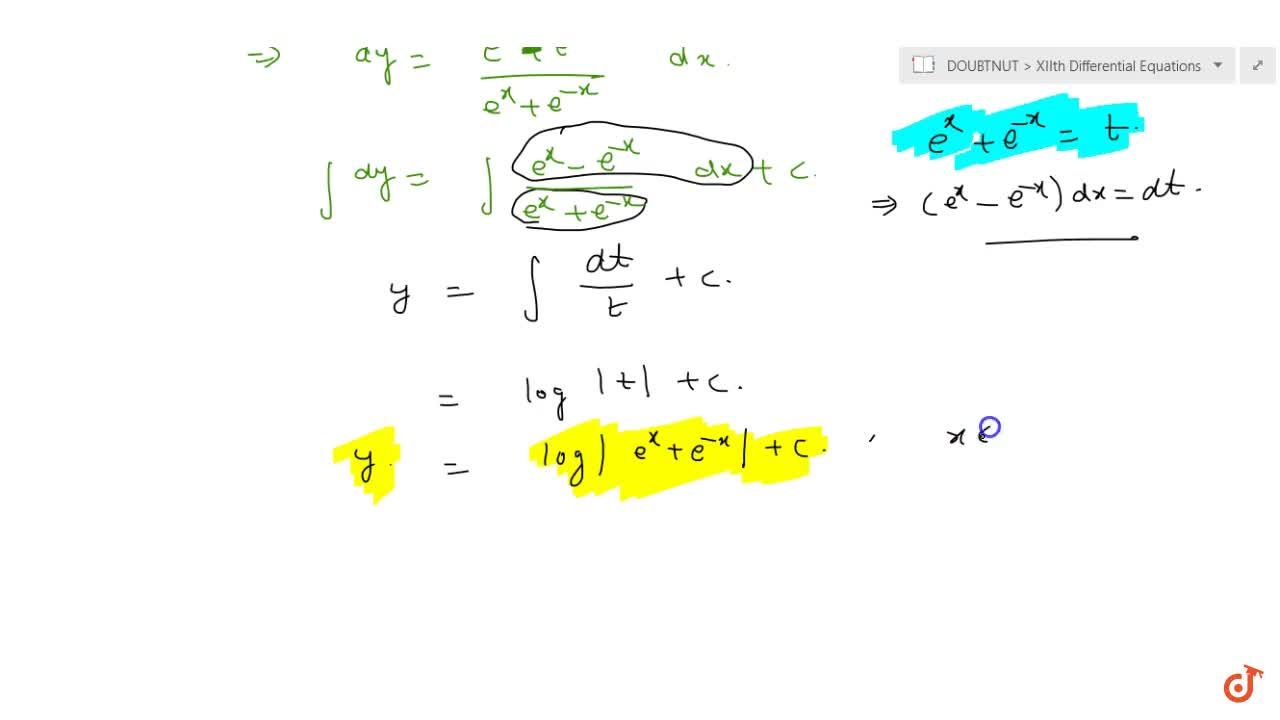 ⇒ dy = / e^x + e^-x dx.
DOUBTNUT > XIIth Differential Equations
e^x + e^-x = t.
∫ dy = ∫ e^x - e^-x / e^x + e^-x dx + c.
⇒ (e^x - e^-x) dx = dt.
y = ∫ dt / t + c.
= log |t| + c.
y = log | e^x + e^-x | + c. , x ∈